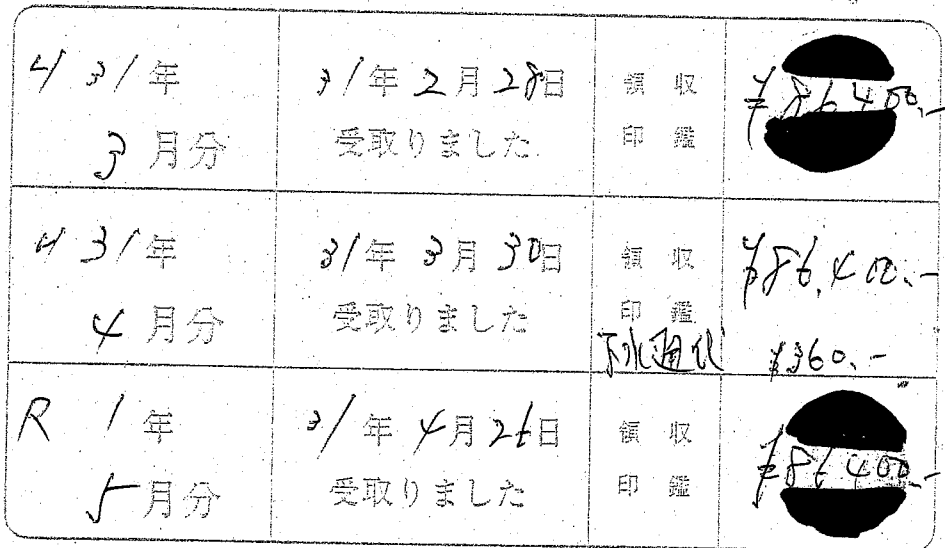 H 31年
3月分
31年2月28日
受取りました
領収
印鑑
¥86,400.-
H 31年
4月分
31年3月30日
受取りました
領収
印鑑
¥86,400.-
下水道代 ¥360.-
R 1年
5月分
31年4月26日
受取りました
領収
印鑑
¥86,400.-